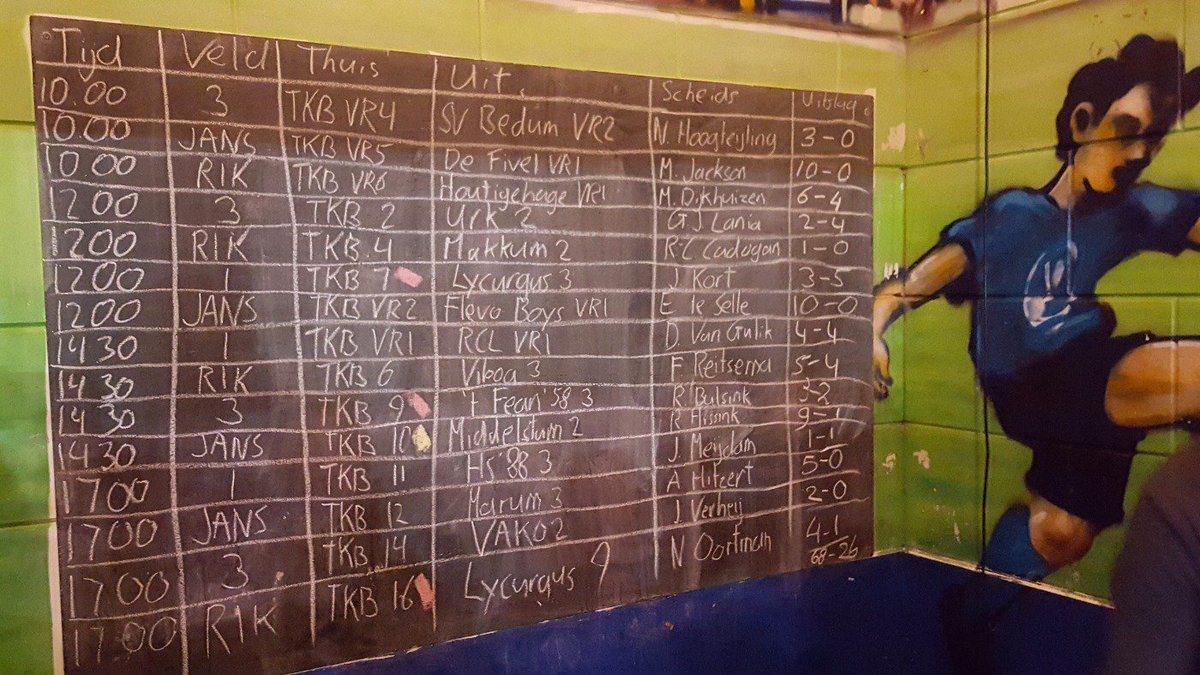 Tijd Veld Thuis Uit Scheids Uitslag
10.00 3 TKB VR4 SV Bedum VR2 N. Hoogteijling 3-0
10.00 JANS TKB VR5 De Fivel VR1 M. Jackson 10-0
10.00 RIK TKB VR6 Houtigehage VR1 M. Dijkhuizen 6-4
12 00 3 TKB 2 Urk 2 G.J. Lania 2-4
12 00 RIK TKB 4 Makkum 2 R-C Cadogan 1-0
12 00 1 TKB 7 Lycurgus 3 J. Kort 3-5
12 00 JANS TKB VR2 Flevo Boys VR1 E te Selle 10-0
14 30 1 TKB VR1 RCL VR1 D. Van Gulik 4-4
14 30 RIK TKB 6 Viboa 3 F Reitsema 5-4
14 30 3 TKB 9 't Fean '58 3 R Bulsink 3-2
14 30 JANS TKB 10 Middelstum 2 R Hissink 9-1
17 00 1 TKB 11 HS'88 3 J. Meijdam 1-1
17 00 JANS TKB 12 Marum 3 A Hitzert 5-0
17 00 3 TKB 14 VAKO 2 J Verheij 2-0
17 00 RIK TKB 16 Lycurgus 9 N Oortman 4-1
68-26